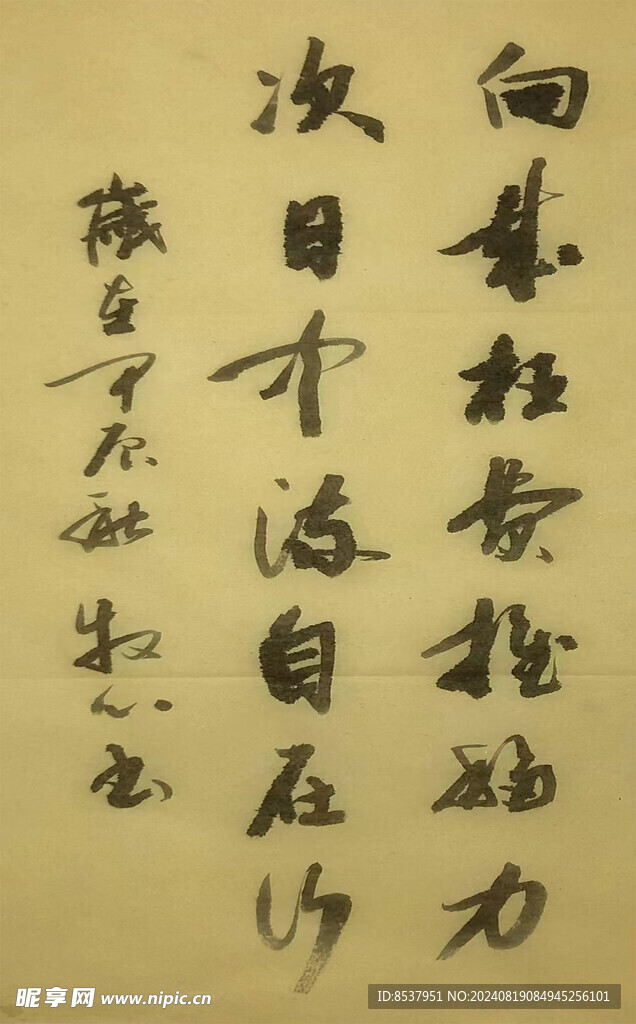 向来枉费推移力
次日中流自在行
歲在甲辰秋 牧心书
昵享网 www.nipic.cn
ID:8537951 NO:20240819084945256101